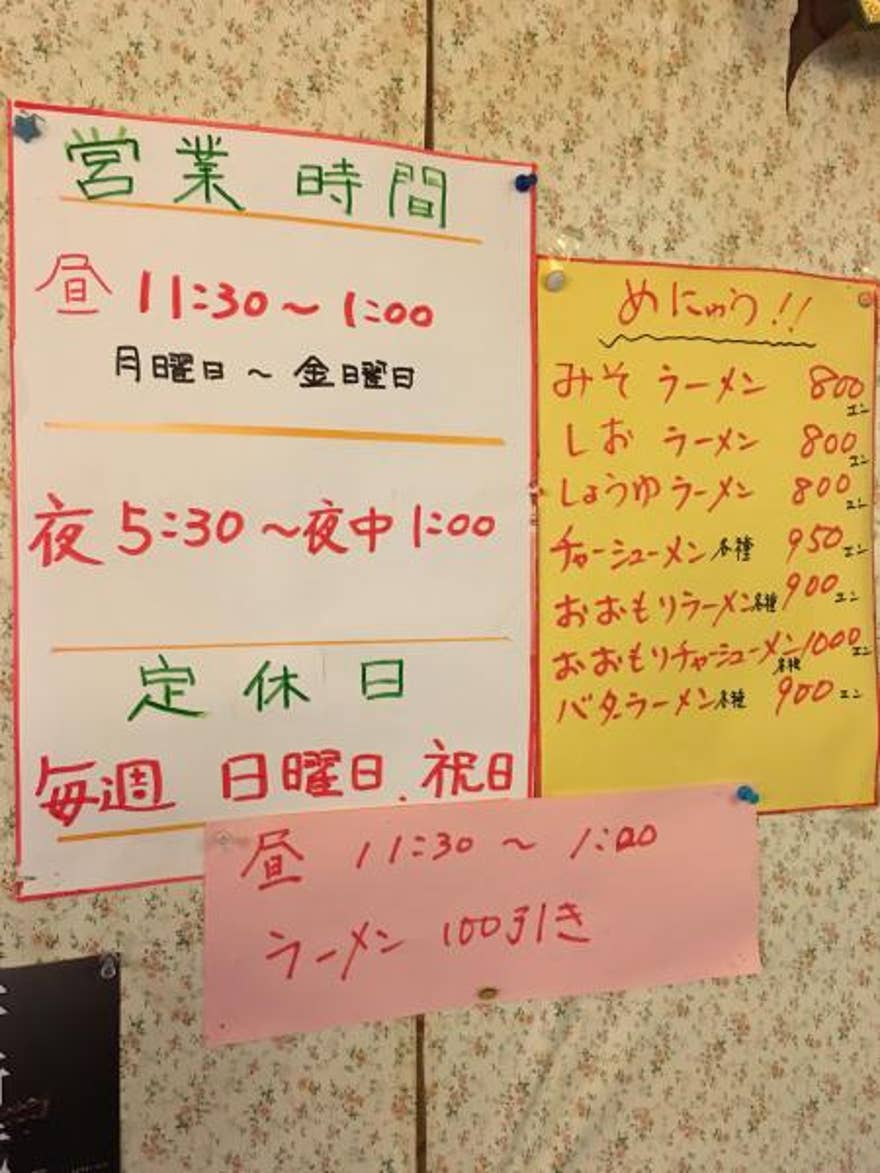 営業時間
昼 11:30～1:00
月曜日～金曜日
夜 5:30～夜中1:00
定休日
毎週 日曜日.祝日
めにゅう!!
みそ ラーメン 800エン
しお ラーメン 800エン
しょうゆ ラーメン 800エン
チャーシューメン各種 950エン
おおもりラーメン各種 900エン
おおもりチャーシューメン各種 1000エン
バターラーメン各種 900エン
昼 11:30～1:00
ラーメン 100引き